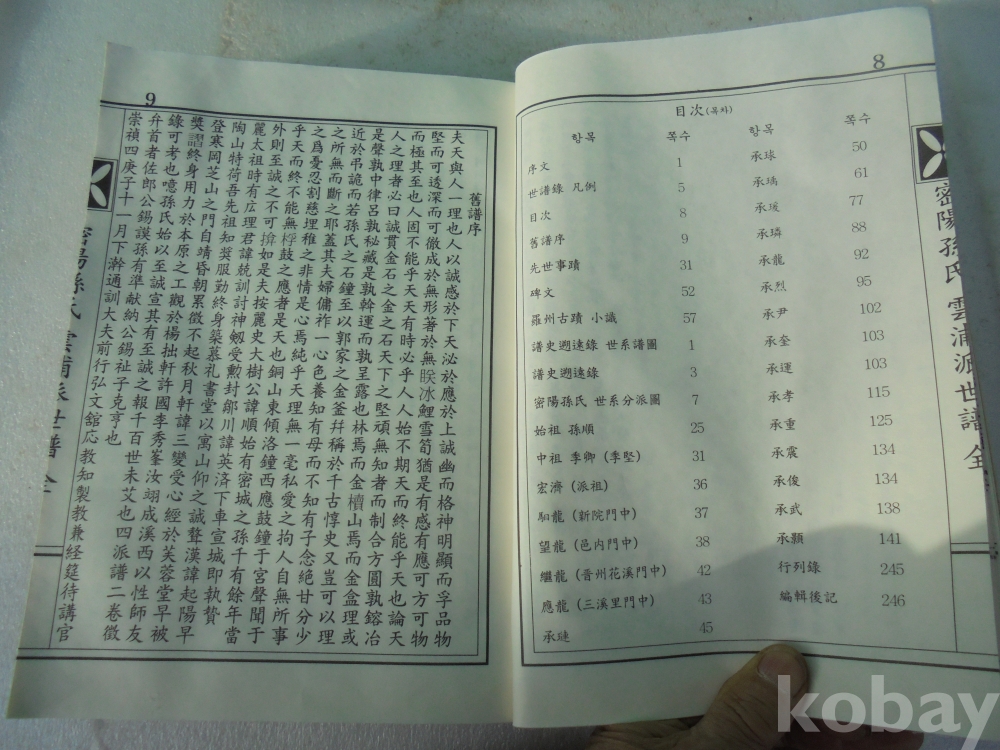 8
密陽孫氏 雲浦派世譜 全
目次(목차)
항목 쪽수 항목 쪽수
序文 1 承球 50
世譜錄 凡例 5 承瑀 61
目次 8 承瑗 77
舊譜序 9 承璘 88
先世事蹟 31 承龍 92
碑文 52 承烈 95
羅州古蹟 小識 57 承尹 102
譜史遡遠錄 世系譜圖 1 承奎 103
譜史遡遠錄 3 承運 103
密陽孫氏 世系分派圖 7 承孝 115
始祖 孫順 25 承重 125
中祖 季卿 (季堅) 31 承震 134
宏濟 (派祖) 36 承俊 134
馹龍 (新院門中) 37 承武 138
望龍 (邑内門中) 38 承顥 141
繼龍 (晋州花溪門中) 42 行列錄 245
應龍 (三溪里門中) 43 編輯後記 246
承璉 45
9
舊譜序
夫天與人一理也人以誠感於下天必於應於上誠幽而格神明顯而孚品物
堅而可透深而可徹成於無形著於無眹冰鯉雪筍猶是有感有應可方可物
而極其至也人固不能乎天天有時必乎人人始不期天而終能乎天也論天
人之理者必曰誠貫金石之金之石天下之堅頑無知者而制合方圓孰鎔冶
是聲孰中律呂孰秘藏是孰幹運而孰呈露也林焉而金櫝山焉而金盒理或
近於吊詭而若孫氏之石鐘至以郭家之金釜幷稱於千古惇史又豈可以理
之所無而斷之耶蓋其夫婦傭祚一心色養知有母而不知有子念絶甘分少
之爲憂忍割慈埋稚之非情是心焉純乎天理無一毫私愛之拘人自無所事
乎天而終不能無桴鼓之應者是天也銅山東傾洛鐘西應鼓鐘于宮聲聞于
外則至誠之不可揜如是夫按麗史大樹公諱順始有密城之孫千有餘年當
麗太祖時有広理君諱兢訓討神劔受勲封鄖川諱英済下車宣城即執贄
陶山特荷吾先祖知奬服勤終身築慕礼書堂以寓山仰之誠聱漢諱起陽早
登寒岡芝山之門自靖昏朝累徴不起秋月軒諱三變受心經於芙蓉堂早被
奬謵終身用力於本原之工觀於楊拙軒許國李秀峯汝翊成溪西以性師友
錄可考也噫孫氏始以至誠宣其有至誠之報千百世未艾也四派譜二巻徴
弁首者佐郎公錫謨孫有準献納公錫祉子克亨也
崇禎四庚子十一月下澣通訓大夫前行弘文舘応教知製教兼経筵待講官
密陽孫氏 雲浦派世譜 全
kobay